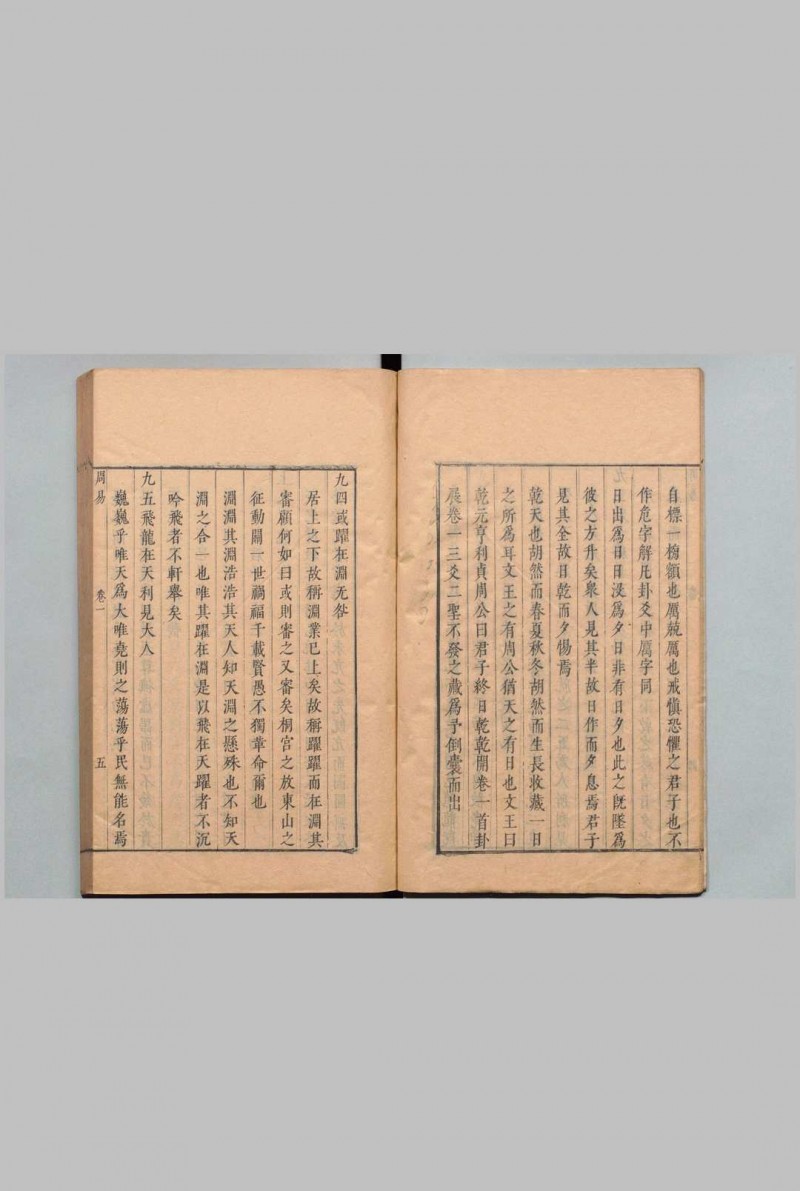 自標一榜額也厲兢厲也戒慎恐懼之君子也不
作危字解凡卦爻中厲字同
日出爲日日沒爲夕日非有日夕也此之旣墜爲
彼之方升矣衆人見其半故日作而夕息焉君子
見其全故日乾而夕惕焉
乾天也胡然而春夏秋冬胡然而生長收藏一日
之所爲耳文王之有周公猶天之有日也文王曰
乾元亨利貞周公曰君子終日乾乾開卷一首卦
展卷一三爻二聖不發之藏爲予倒囊而出
九四或躍在淵无咎
居上之下故稱淵業已上矣故稱躍躍而在淵其
審顧何如曰或則審之又審矣桐宮之放東山之
征動關一世禍福千載賢愚不獨革命爾也
淵淵其淵浩浩其天人知天淵之懸殊也不知天
淵之合一也唯其躍在淵是以飛在天躍者不沉
吟飛者不軒舉矣
九五飛龍在天利見大人
巍巍乎唯天爲大唯堯則之蕩蕩乎民無能名焉
周易 卷一 五